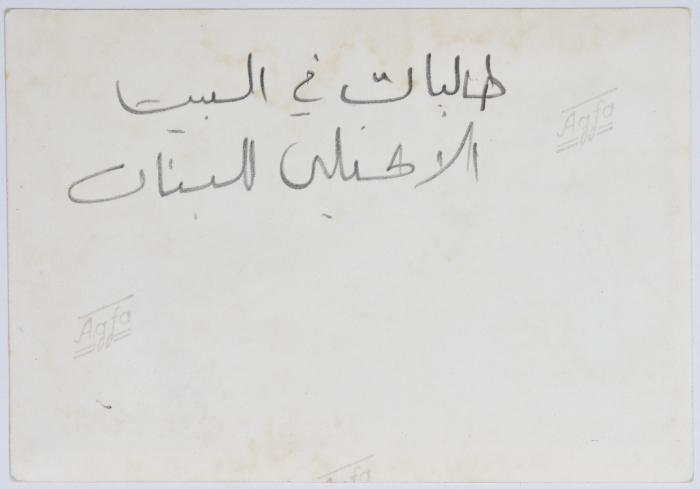 طالبات في البيت
الانجيلي للبنات
Agfa
Agfa
Agfa